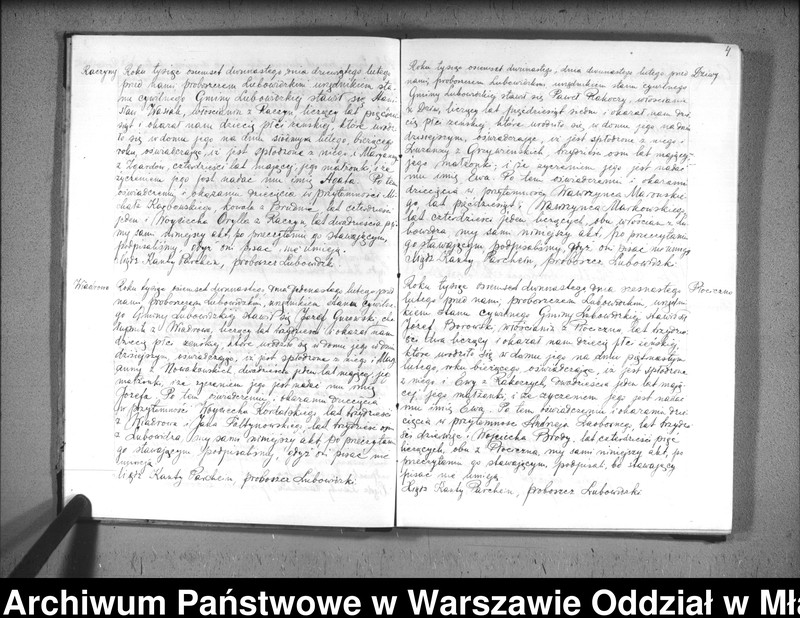 Raczyny Roku tysiąc osiemset dwunastego dnia dziewiątego lutego
przed nami, proboszczem Lubowidzkim urzędnikiem sta-
nu cywilnego Gminy Lubowidzkiej stawił się Stani-
sław Wasiak, włościanin z Raczyn liczący lat pięćdzie-
siąt i okazał nam dziecię płci żeńskiej, które urodzi-
ło się w domu jego na dniu siódmym lutego, bieżącego
roku, oświadczając, iż jest spłodzone z niego i Maryanny
lat mający, jego małżonki, i że
życzeniem jego jest nadać mu imię Agata. Po tem
oświadczeniu i okazaniu dziecięcia w przytomności Mi-
chała kowala z lat czterdzieści
jeden i Wojciecha z Raczyn, lat dwadzieścia
my sam niniejszy akt, po przeczytaniu go stawającym,
podpisaliśmy, gdyż oni pisać nie umieją.
Xiądz Kanty Parchem, proboszcz Lubowidzki.
Wiadrowo Roku tysiąc osiemset dwunastego dnia jedenastego lutego przed
nami, proboszczem Lubowidzkim, urzędnikiem stanu cywilne-
go Gminy Lubowidzkiej stawił się Józef cha-
łupnik z Wiadrowa, liczący lat trzydzieści i okazał nam
dziecię płci żeńskiej, które urodziło się w domu jego w dniu
dzisiejszym, oświadczając, iż jest spłodzone z niego i Mary-
anny z Nowakowskich, dwadzieścia jeden lat mającej, jego
małżonki, i że życzeniem jego jest nadać mu imię
Józefa. Po tem oświadczeniu i okazaniu dziecięcia
w przytomności Wojciecha lat trzydzieści
z Wiadrowa i Jana lat trzydzieści osm
z Lubowidza. My sam niniejszy akt, po przeczytaniu
go stawającym podpisaliśmy, gdyż oni pisać nie
umieją.
Xiądz Kanty Parchem, proboszcz Lubowidzki.
4
Roku tysiąc osiemset dwunastego, dnia dwunastego lutego przed Dziwy
nami, proboszczem Lubowidzkim urzędnikiem stanu cywilnego
Gminy Lubowidzkiej stawił się Paweł Rakoczy, włościanin
z Dziw, liczący lat pięćdziesiąt siedm i okazał nam dzie-
cię płci żeńskiej, które urodziło się w domu jego na dniu
dzisiejszym, oświadczając, iż jest spłodzone z niego i
Zuzanny z trzydzieści osm lat mającej
jego małżonki; i że życzeniem jego jest nadać
mu imię Ewa. Po tem oświadczeniu i okazaniu
dziecięcia w przytomności Wawrzyńca
go lat pięćdziesiąt i Wawrzyńca Markowskiego,
lat czterdzieści jeden liczących, obu włościan z Lu-
bowidza, my sam niniejszy akt, po przeczytaniu
go stawającym podpisaliśmy, gdyż oni pisać nie umieją
Xiądz Kanty Parchem, proboszcz Lubowidzki
Roku tysiąc osiemset dwunastego dnia szesnastego Płociczno
lutego przed nami, proboszczem Lubowidzkim, urzędni-
kiem stanu cywilnego Gminy Lubowidzkiej stawił się
Józef Borowski, włościanin z Płociczna, lat trzydzie-
ści dwa liczący i okazał nam dziecię płci żeńskiej,
które urodziło się w domu jego na dniu piętnastym
lutego, roku bieżącego, oświadczając, iż jest spłodzone
z niego i Ewy z Rakoczych, dwadzieścia jeden lat mają-
cej, jego małżonki, i że życzeniem jego jest nadać
mu imię Ewa. Po tem oświadczeniu i okazaniu dzie-
cięcia w przytomności Andrzeja lat trzydzie-
ści dziewięć i Wojciecha Brody, lat czterdzieści pięć
liczących, obu z Płociczna, my sam niniejszy akt, po
przeczytaniu go stawającym, podpisał, bo stawający
pisać nie umieją
Xiądz Kanty Parchem, proboszcz Lubowidzki
Archiwum Państwowe w Warszawie Oddział w Mła